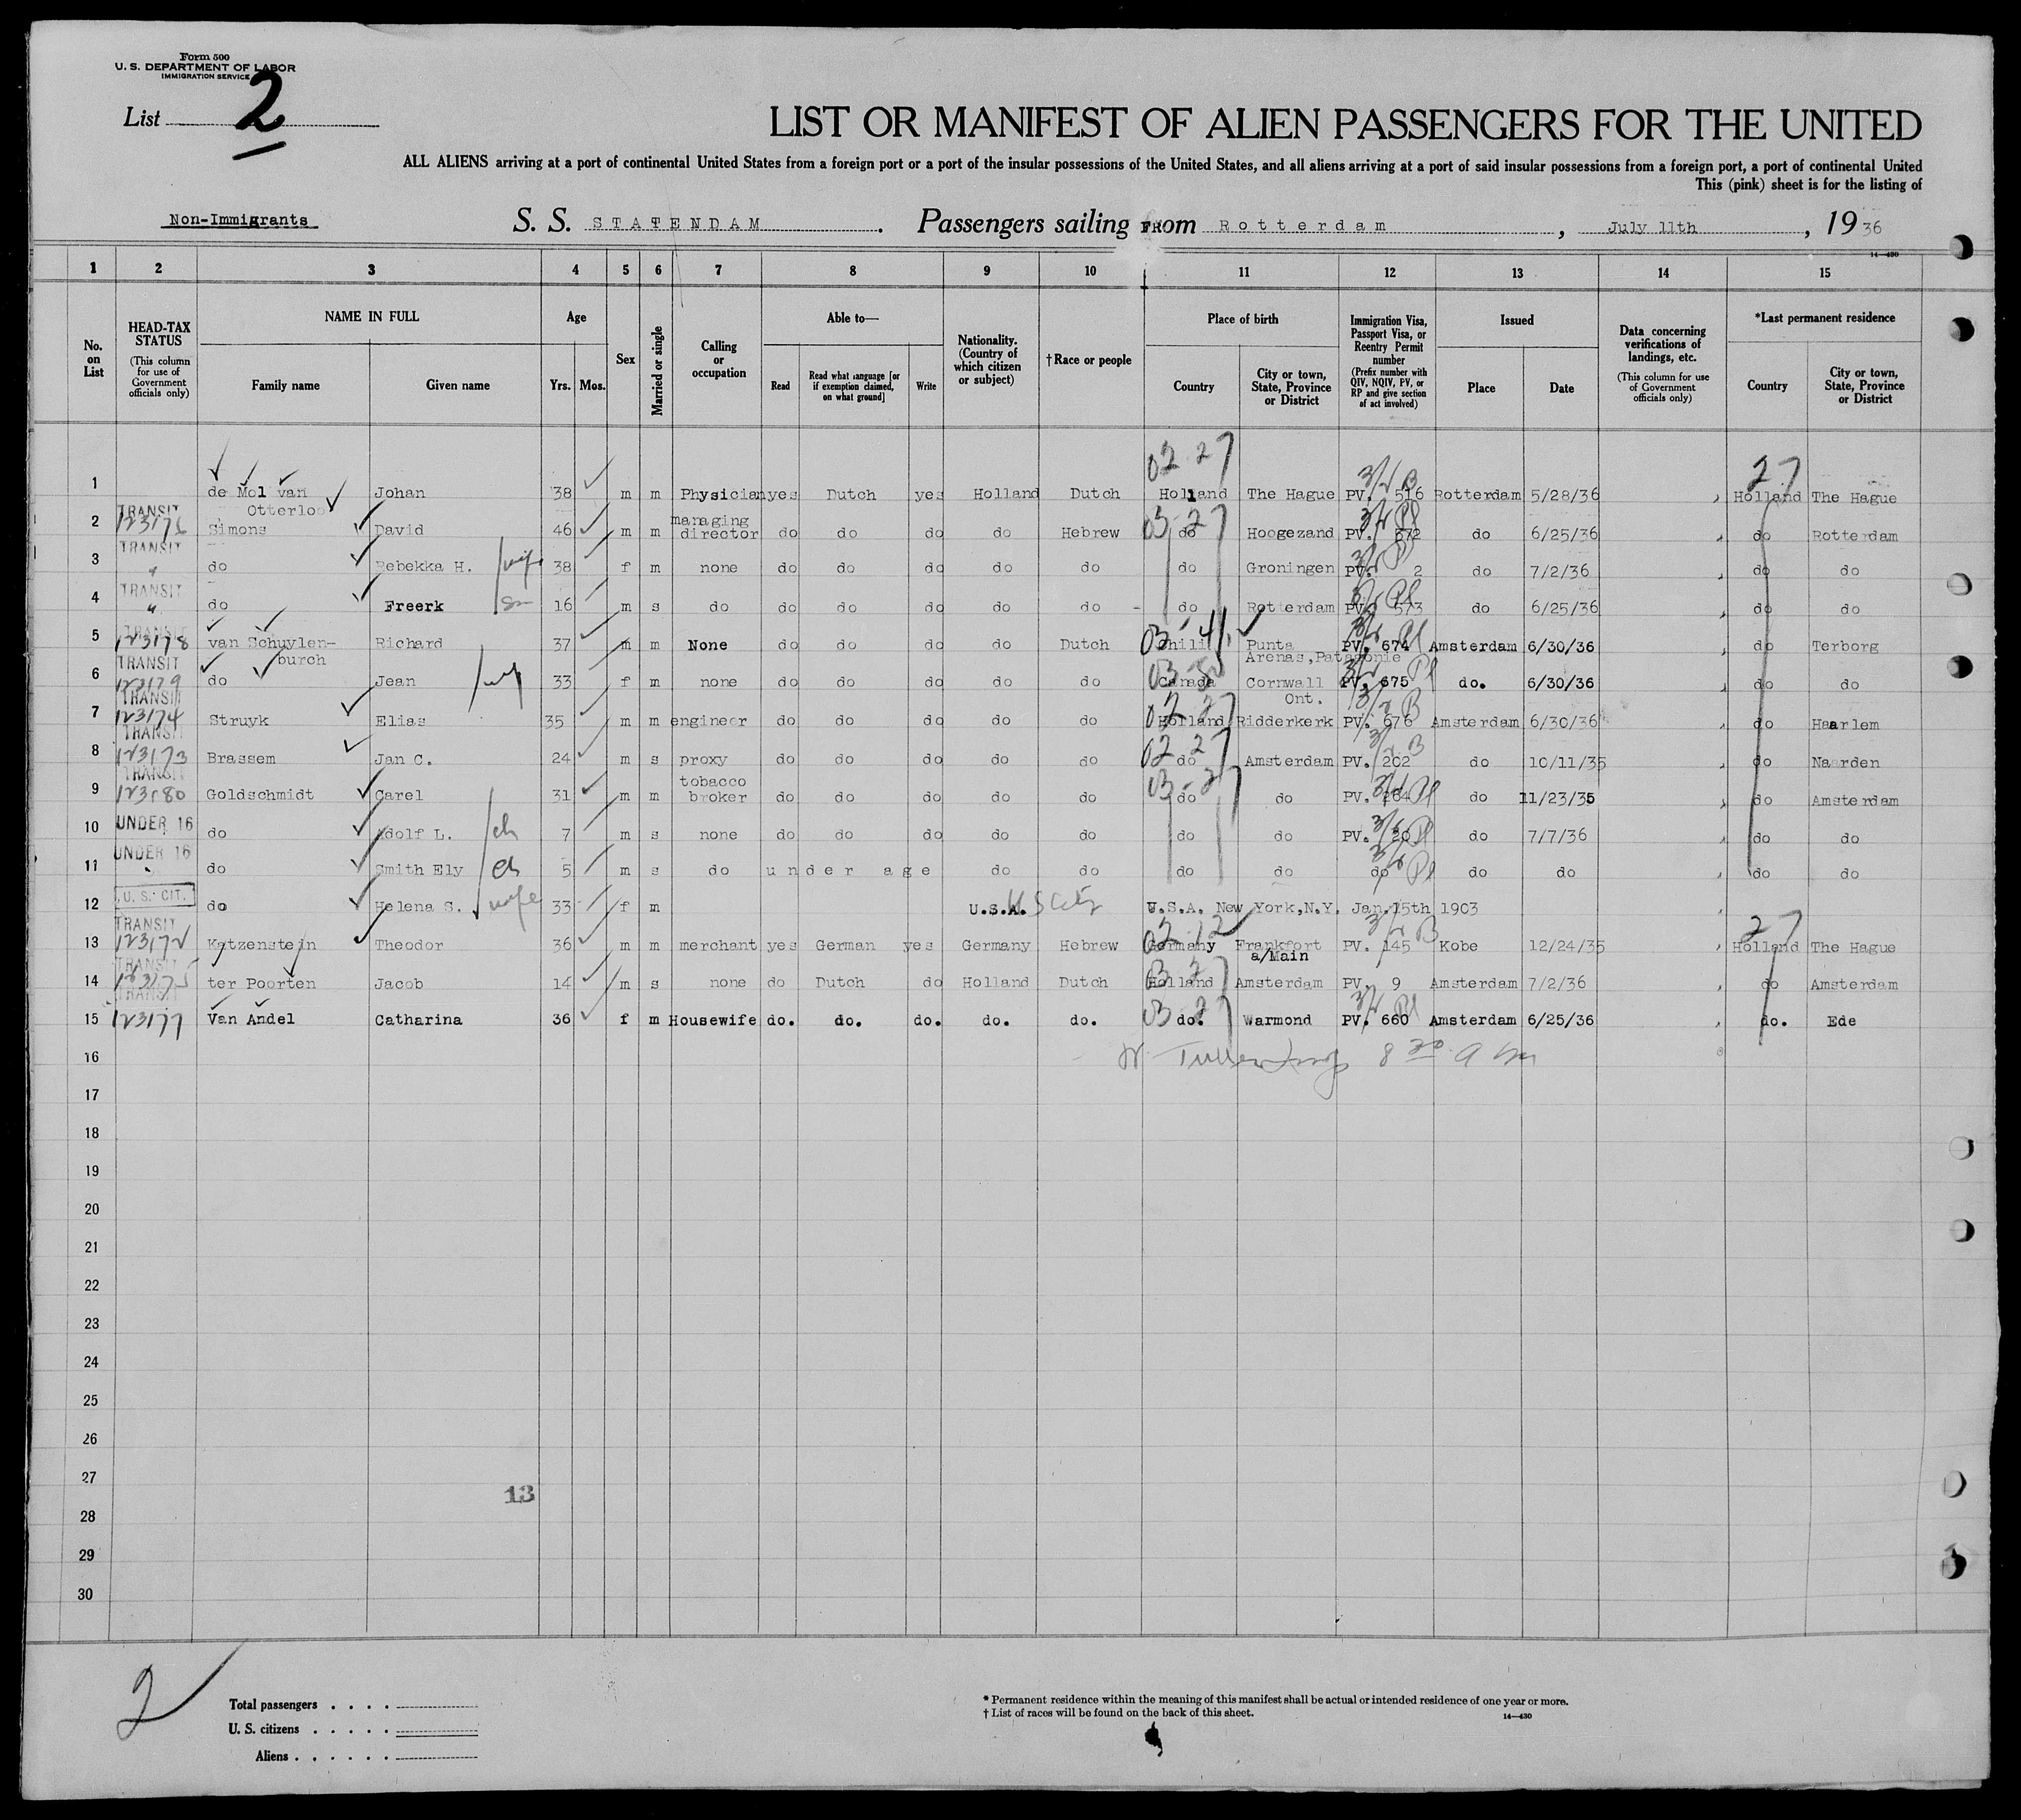 Form 500
U. S. DEPARTMENT OF LABOR
IMMIGRATION SERVICE
List 2
LIST OR MANIFEST OF ALIEN PASSENGERS FOR THE UNITED
ALL ALIENS arriving at a port of continental United States from a foreign port or a port of the insular possessions of the United States, and all aliens arriving at a port of said insular possessions from a foreign port, a port of continental United
This (pink) sheet is for the listing of
Non-Immigrants S. S. STATENDAM. Passengers sailing FROM Rotterdam, July 11th, 19 36
14—430
1 2 3 4 5 6 7 8 9 10 11 12 13 14 15
No. on List
HEAD-TAX STATUS (This column for use of Government officials only)
NAME IN FULL Family name Given name
Age Yrs. Mos.
Sex
Married or single
Calling or occupation
Able to— Read Read what language [or if exemption claimed, on what ground] Write
Nationality. (Country of which citizen or subject)
†Race or people
Place of birth Country City or town, State, Province or District
Immigration Visa, Passport Visa, or Reentry Permit number (Prefix number with QIV, NQIV, PV, or RP and give section of act involved)
Issued Place Date
Data concerning verifications of landings, etc. (This column for use of Government officials only)
*Last permanent residence Country City or town, State, Province or District
02 27 3/2 B 27
1 de Mol van Otterloo Johan 38 m m Physician yes Dutch yes Holland Dutch Holland The Hague PV. 516 Rotterdam 5/28/36 Holland The Hague
2 TRANSIT 123176 Simons David 46 m m managing director do do do do Hebrew do Hoogezand PV. 672 do 6/25/36 do Rotterdam
3 TRANSIT " do Rebekka H. wife 38 f m none do do do do do do Groningen PV. 2 do 7/2/36 do do
4 TRANSIT " do Freerk 16 m s do do do do do do do Rotterdam PV. 673 do 6/25/36 do do
5 TRANSIT 123178 van Schuylenburch Richard 37 m m None do do do do Dutch Chili Punta Arenas, Patagonie PV. 674 Amsterdam 6/30/36 do Terborg
6 TRANSIT 123179 do Jean 33 f m none do do do do do Canada Cornwall Ont. PV. 675 do. 6/30/36 do do
7 TRANSIT 123174 Struyk Elias 35 m m engineer do do do do do Holland Ridderkerk PV. 676 Amsterdam 6/30/36 do Haarlem
8 TRANSIT 123173 Brassem Jan C. 24 m s proxy do do do do do do Amsterdam PV. 202 do 10/11/35 do Naarden
9 TRANSIT 123180 Goldschmidt Carel 31 m m tobacco broker do do do do do do do PV. 264 do 11/23/35 do Amsterdam
10 UNDER 16 do Adolf L. ch 7 m s none do do do do do do do PV. 20 do 7/7/36 do do
11 UNDER 16 do Smith Ely ch 5 m s do under age do do do do do do do do do
12 U. S. CIT. do Helena S. wife 33 f m U.S.A. U.S.A. New York, N.Y. Jan. 15th 1903
13 TRANSIT 123172 Katzenstein Theodor 36 m m merchant yes German yes Germany Hebrew Germany Frankfort a/Main PV. 145 Kobe 12/24/35 Holland The Hague
14 TRANSIT 123175 ter Poorten Jacob 14 m s none do Dutch do Holland Dutch Holland Amsterdam PV. 9 Amsterdam 7/2/36 do Amsterdam
15 TRANSIT 123177 Van Andel Catharina 36 f m Housewife do. do. do. do. do. do. Warmond PV. 660 Amsterdam 6/25/36 do. Ede
16
17
18
19
20
21
22
23
24
25
26
27
13
28
29
30
2
Total passengers
U. S. citizens
Aliens
* Permanent residence within the meaning of this manifest shall be actual or intended residence of one year or more.
† List of races will be found on the back of this sheet.
14—430